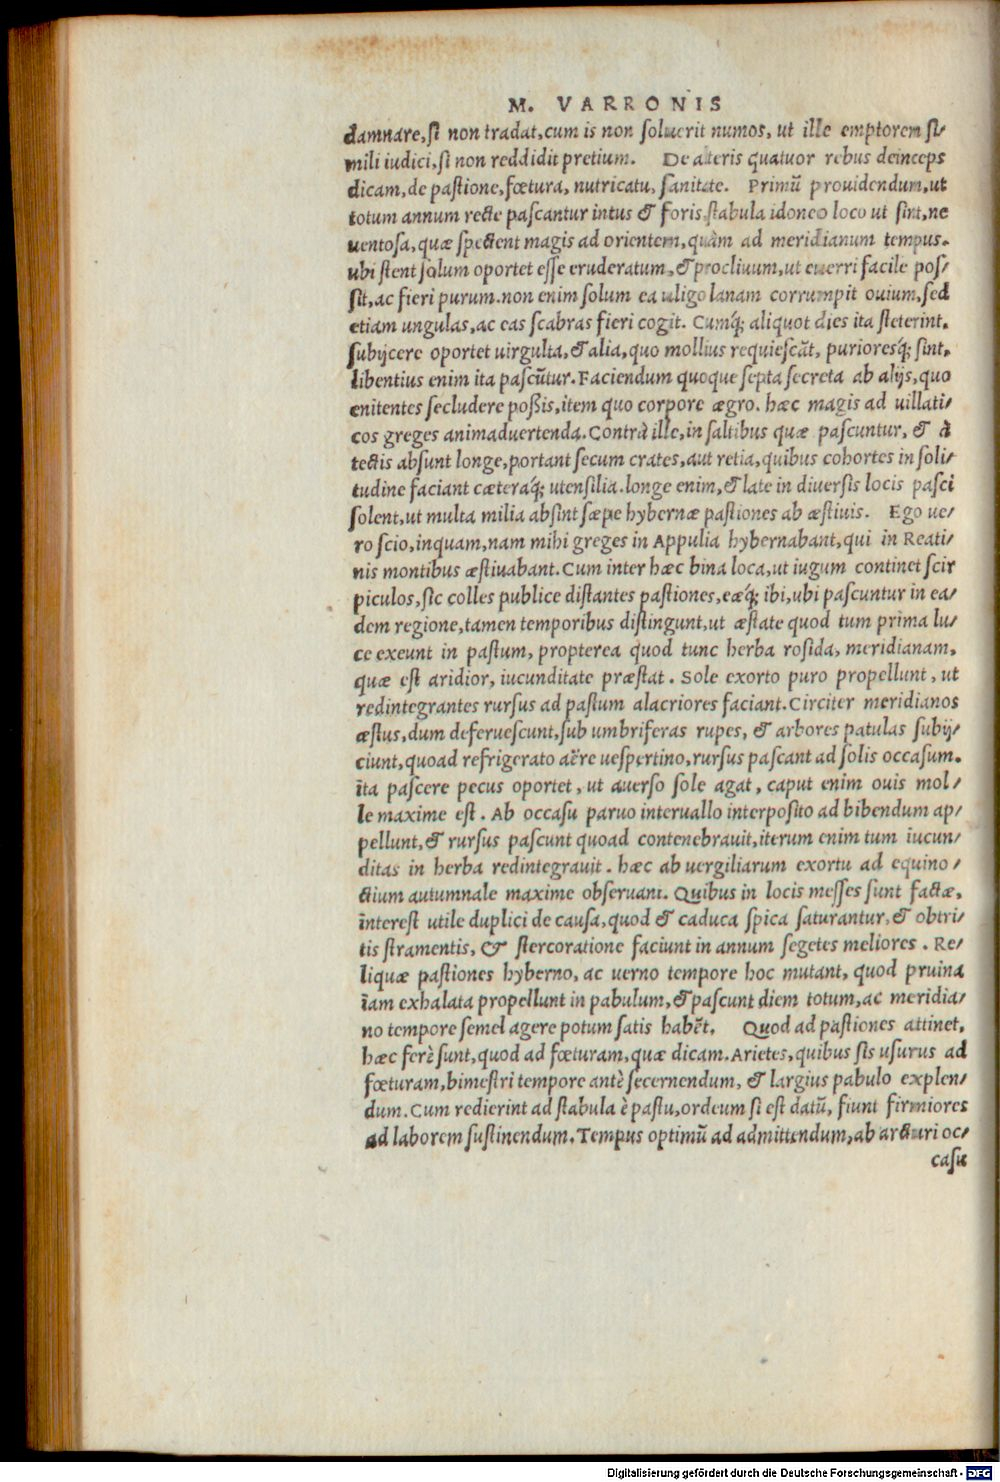 M. VARRONIS
damnare, si non tradat, cum is non soluerit numos, ut ille emptorem si/
mili iudici, si non reddidit pretium. De alteris quatuor rebus deinceps
dicam, de pastione, fœtura, nutricatu, sanitate. Primũ prouidendum, ut
totum annum recte pascantur intus & foris, stabula idoneo loco ut sint, ne
uentosa, quæ spectent magis ad orientem, quàm ad meridianum tempus.
ubi stent solum oportet esse eruderatum, & procliuum, ut euerri facile pos/
sit, ac fieri purum. non enim solum ea uligo lanam corrumpit ouium, sed
etiam ungulas, ac eas scabras fieri cogit. Cumq́; aliquot dies ita steterint,
subijcere oportet uirgulta, & alia, quo mollius requiescãt, purioresq́; sint,
libentius enim ita pascũtur. Faciendum quoque septa secreta ab alijs, quo
enitentes secludere poßis, item quo corpore ægro. hæc magis ad uillati/
cos greges animaduertenda. Contrà ille, in saltibus quæ pascuntur, & à
tectis absunt longe, portant secum crates, aut retia, quibus cohortes in soli/
tudine faciant cæteraq́; utensilia. longe enim, & late in diuersis locis pasci
solent, ut multa milia absint sæpe hybernæ pastiones ab æstiuis. Ego ue/
ro scio, inquam, nam mihi greges in Appulia hybernabant, qui in Reati/
nis montibus æstiuabant. Cum inter hæc bina loca, ut iugum continet scir
piculos, sic colles publice distantes pastiones, eæq́; ibi, ubi pascuntur in ea/
dem regione, tamen temporibus distingunt, ut æstate quod tum prima lu/
ce exeunt in pastum, propterea quod tunc herba rosida, meridianam,
quæ est aridior, iucunditate præstat. Sole exorto puro propellunt, ut
redintegrantes rursus ad pastum alacriores faciant. Circiter meridianos
æstus, dum deferuescunt, sub umbriferas rupes, & arbores patulas subij/
ciunt, quoad refrigerato aëre uespertino, rursus pascant ad solis occasum.
ita pascere pecus oportet, ut auerso sole agat, caput enim ouis mol/
le maxime est. Ab occasu paruo interuallo interposito ad bibendum ap/
pellunt, & rursus pascunt quoad contenebrauit, iterum enim tum iucun/
ditas in herba redintegrauit. hæc ab uergiliarum exortu ad equino/
ctium autumnale maxime obseruant. Quibus in locis messes sunt factæ,
interest utile duplici de causa, quod & caduca spica saturantur, & obtri/
tis stramentis, & stercoratione faciunt in annum segetes meliores. Re/
liquæ pastiones hyberno, ac uerno tempore hoc mutant, quod pruina
iam exhalata propellunt in pabulum, & pascunt diem totum, ac meridia/
no tempore semel agere potum satis habẽt. Quod ad pastiones attinet,
hæc ferè sunt, quod ad fœturam, quæ dicam. Arietes, quibus sis usurus ad
fœturam, bimestri tempore antè secernendum, & largius pabulo explen/
dum. Cum redierint ad stabula è pastu, ordeum si est datũ, fiunt firmiores
ad laborem sustinendum. Tempus optimũ ad admittendum, ab arcturi oc/
casu
Digitalisierung gefördert durch die Deutsche Forschungsgemeinschaft - DFG